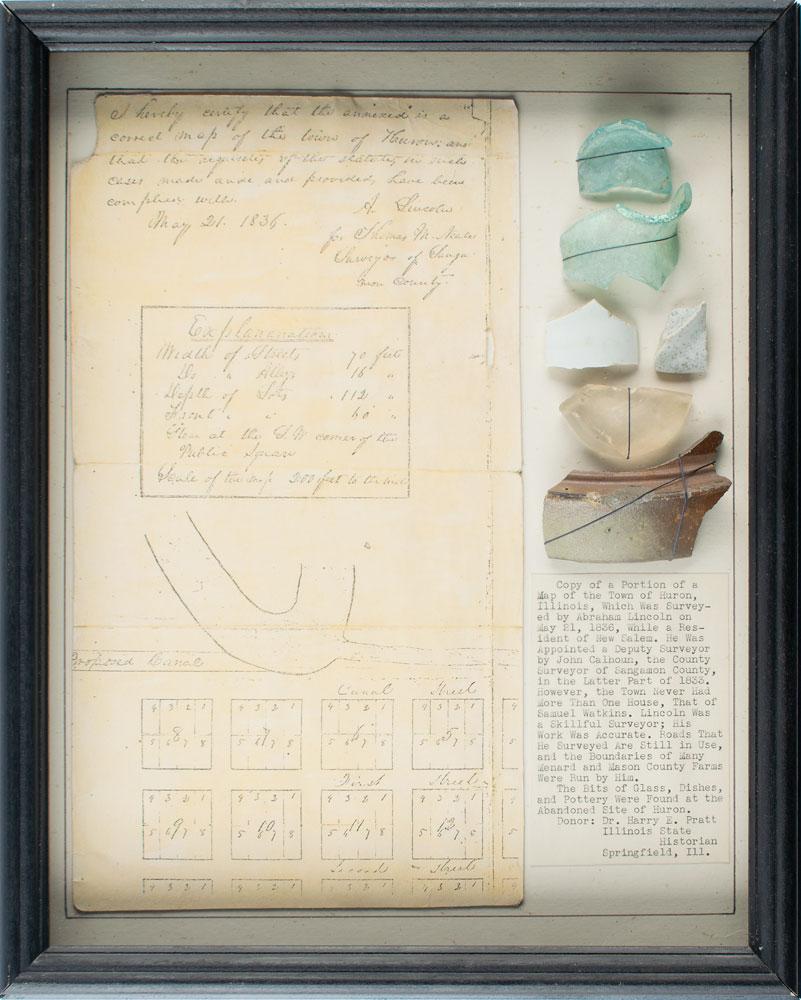 I hereby certify that the annexed is a
correct map of the town of Huron; and
that the requisites of the statute, in such
cases made and provided, have been
complied with.
May 21. 1836.
A. Lincoln
for Thomas M. Neale
Surveyor of Sanga-
mon County.
Explananation
Width of Streets 70 feet
Do " Alleys 16 "
Depth of Lots 112 "
Front " " 60 "
at the S.W corner of the
Public Square
Scale of the map 200 feet to the inch
Proposed Canal
Canal Street
4 3 2 1 4 3 2 1 4 3 2 1 4 3 2 1 4
5 6 7 8 5 6 7 8 5 6 7 8 5 6 7 8 5
8 7 6 5
First Street
4 3 2 1 4 3 2 1 4 3 2 1 4 3 2 1 4
5 6 7 8 5 6 7 8 5 6 7 8 5 6 7 8 5
9 10 11 12
Second Street
4 3 2 1 4 3 2 1 4 3 2 1 4 3 2 1 4
Copy of a Portion of a
Map of the Town of Huron,
Illinois, Which Was Survey-
ed by Abraham Lincoln on
May 21, 1836, While a Res-
ident of New Salem. He Was
Appointed a Deputy Surveyor
by John Calhoun, the County
Surveyor of Sangamon County,
in the Latter Part of 1833.
However, the Town Never Had
More Than One House, That of
Samuel Watkins. Lincoln Was
a Skillful Surveyor; His
Work Was Accurate. Roads That
He Surveyed Are Still in Use,
and the Boundaries of Many
Menard and Mason County Farms
Were Run by Him.
The Bits of Glass, Dishes,
and Pottery Were Found at the
Abandoned Site of Huron.
Donor: Dr. Harry E. Pratt
Illinois State
Historian
Springfield, Ill.